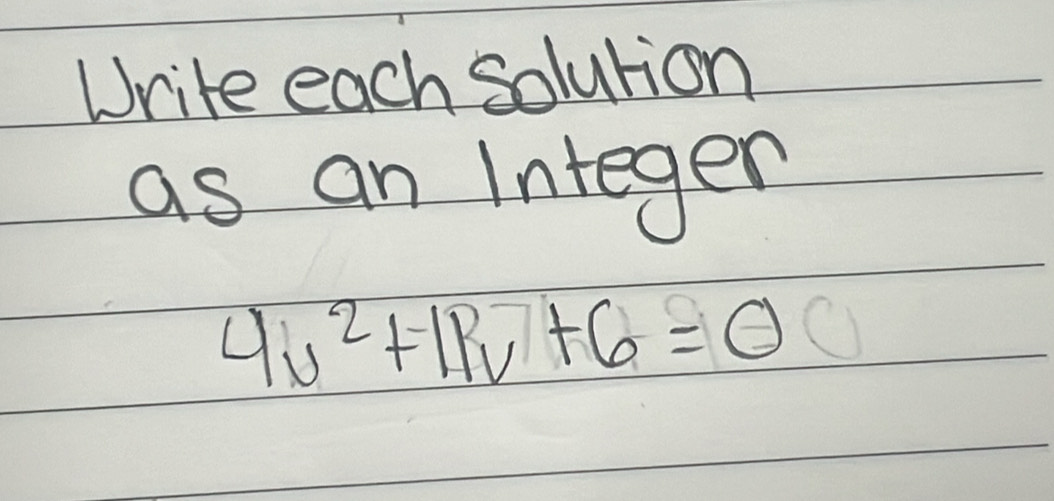 Write each solution
as an Integer
4v² + 11v + 6 = 0